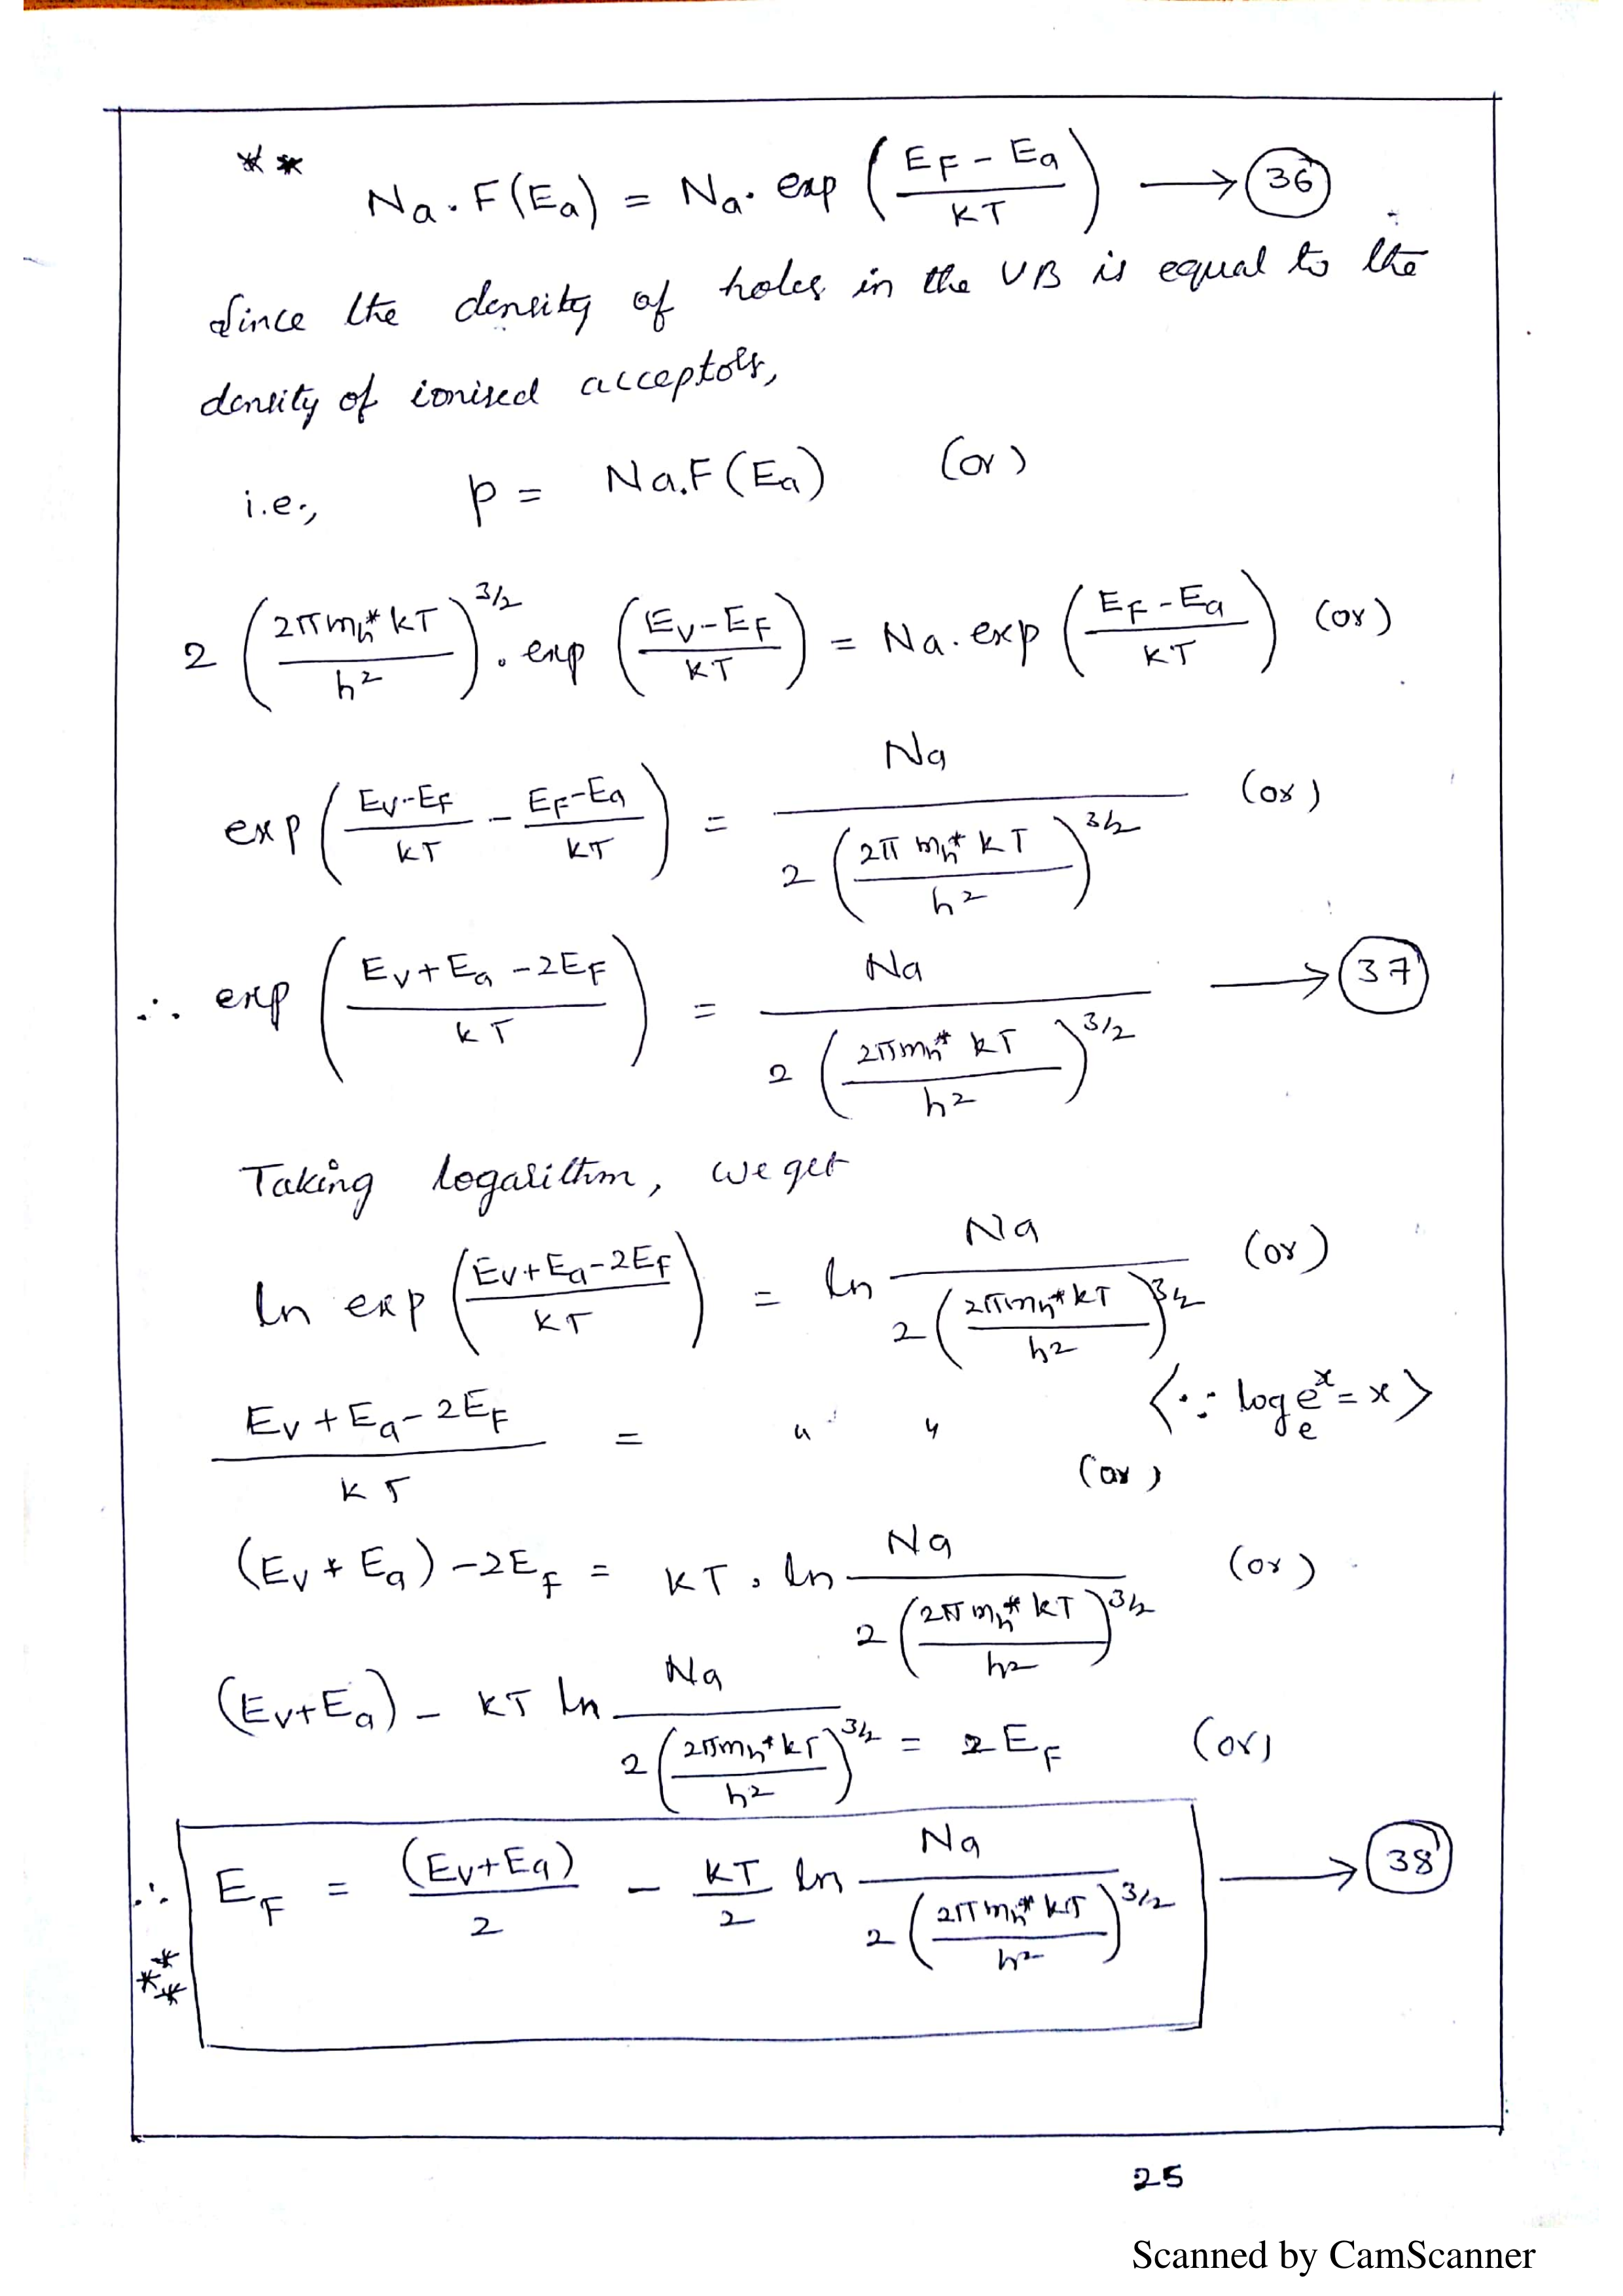 ** Na . F(Ea) = Na . exp ((EF - Ea)/KT) → (36)
Since the density of holes in the VB is equal to the
density of ionised acceptors,
i.e., p = Na.F(Ea) (or)
2 ((2π mh* kT)/h²)^3/2 . exp ((Ev-EF)/KT) = Na . exp ((EF-Ea)/KT) (or)
exp ((Ev-EF)/KT - (EF-Ea)/KT) = Na / (2 ((2π mh* kT)/h²)^3/2) (or)
∴ exp ((Ev+Ea-2EF)/kT) = Na / (2 ((2π mh* kT)/h²)^3/2) → (37)
Taking logarithm, we get
ln exp ((Ev+Ea-2EF)/KT) = ln Na / (2 ((2π mh* kT)/h²)^3/2) (or)
(Ev+Ea-2EF)/KT = " " ⟨∵ log_e e^x = x⟩
(or)
(Ev+Ea) -2EF = KT . ln Na / (2 ((2π mh* kT)/h²)^3/2) (or)
(Ev+Ea) - KT ln Na / (2 ((2π mh* kT)/h²)^3/2) = 2EF (or)
∴ EF = (Ev+Ea)/2 - KT/2 ln Na / (2 ((2π mh* kT)/h²)^3/2) → (38)
***
25
Scanned by CamScanner